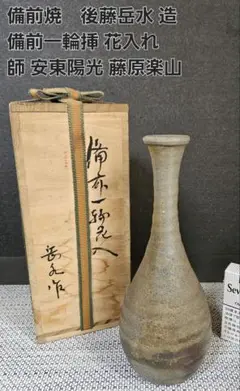 備前焼　後藤岳水 造
備前一輪挿 花入れ
師 安東陽光 藤原楽山
備前一輪花入
岳水作
Sev